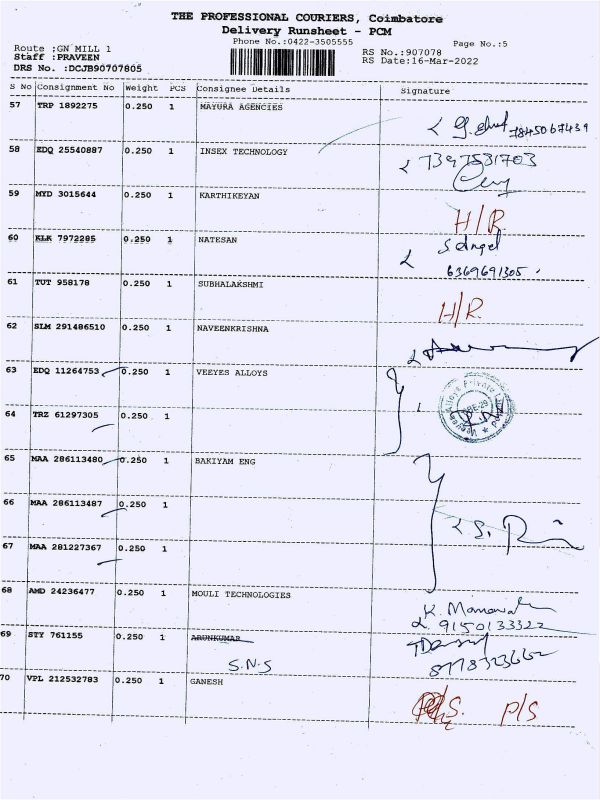 THE PROFESSIONAL COURIERS, Coimbatore
Delivery Runsheet - PCM
Phone No.:0422-3505555
Page No.:5
Route :GN MILL 1
RS No.:907078
Staff :PRAVEEN
RS Date:16-Mar-2022
DRS No. :DCJB90707805
S No Consignment No Weight PCS Consignee Details Signature
57 TRP 1892275 0.250 1 MAYURA AGENCIES
7845067439
58 EDQ 25540887 0.250 1 INSEX TECHNOLOGY
7397531703
59 MYD 3015644 0.250 1 KARTHIKEYAN
H/R
60 KLK 7972285 0.250 1 NATESAN
6369691305
61 TUT 958178 0.250 1 SUBHALAKSHMI
H/R
62 SLM 291486510 0.250 1 NAVEENKRISHNA
63 EDQ 11264753 0.250 1 VEEYES ALLOYS
64 TRZ 61297305 0.250 1
65 MAA 286113480 0.250 1 BAKIYAM ENG
66 MAA 286113487 0.250 1
67 MAA 281227367 0.250 1
68 AMD 24236477 0.250 1 MOULI TECHNOLOGIES
9150133322
69 STY 761155 0.250 1 ARUNKUMAR
S.N.S
70 VPL 212532783 0.250 1 GANESH
P/S